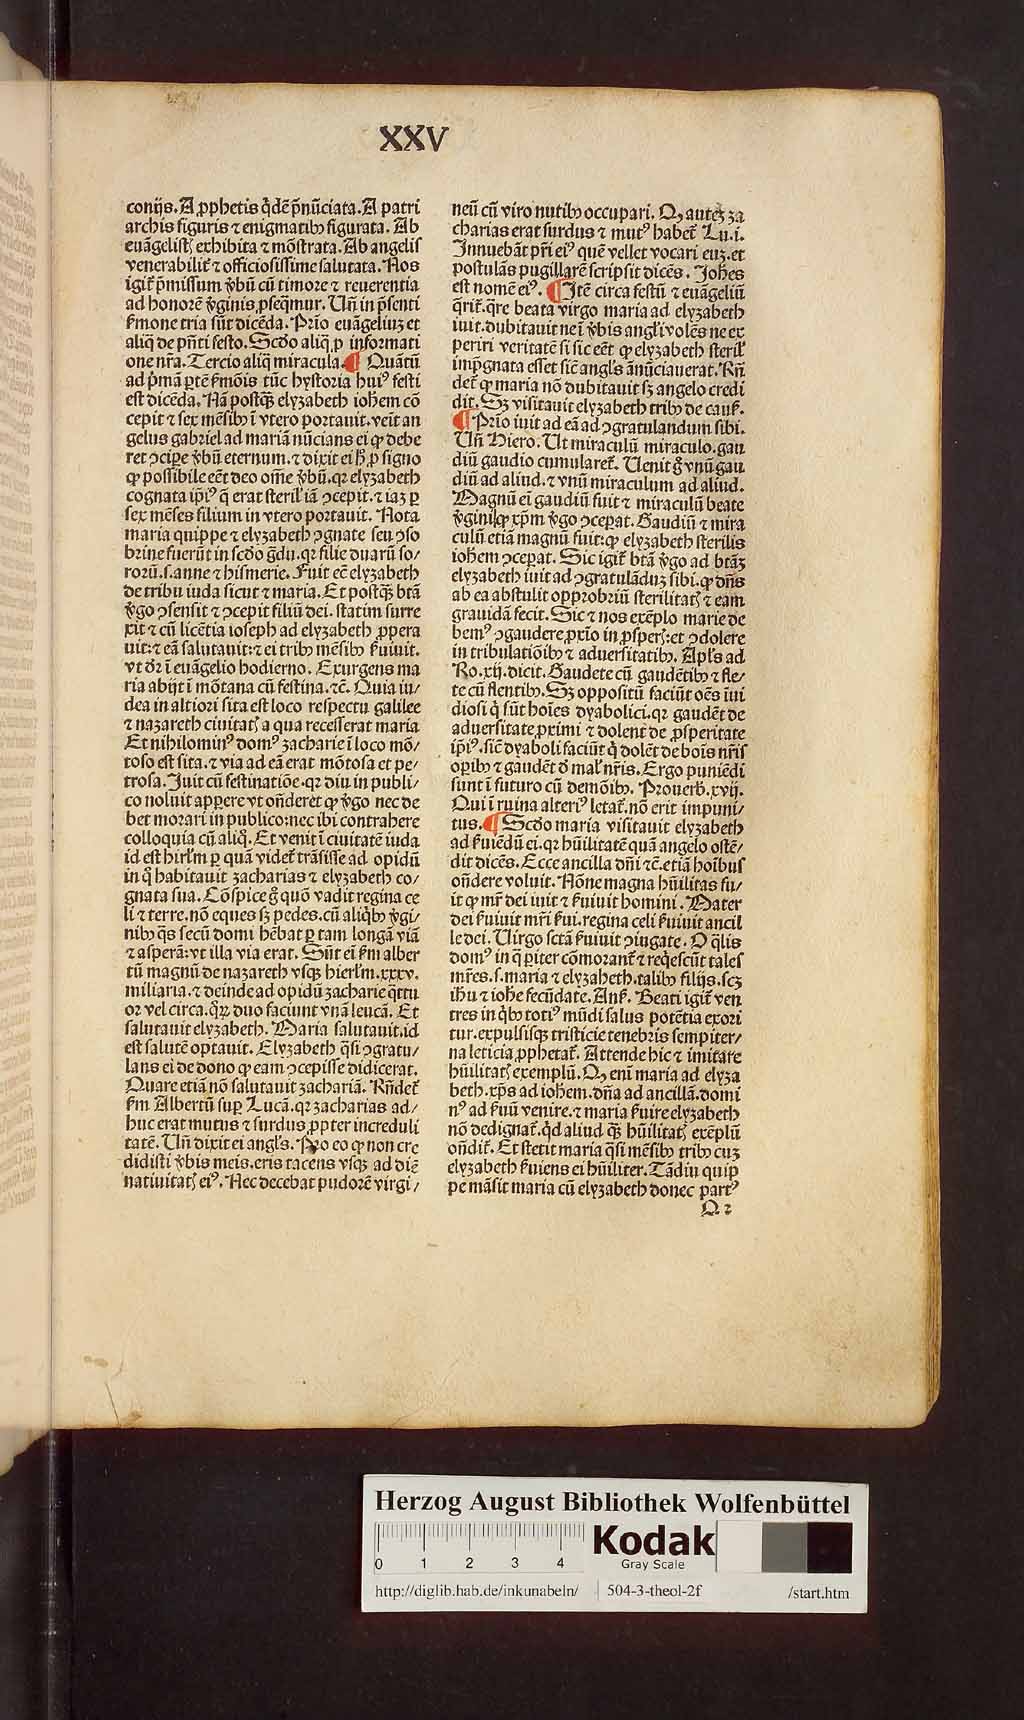 XXV
conijs. A ꝓphetis q̇dē p̄nūciata. A patri
archis figuris ⁊ enigmatibꝫ figurata. Ab
euāgelistꝭ exhibita ⁊ mōstrata. Ab angelis
venerabilit̄ ⁊ officiosissime salutata. Nos
igit̄ p̄missum v̄bū cū timore ⁊ reuerentia
ad honorē v̄ginis ꝓseq̄mur. Un̄ in p̄senti
ẜmone tria sūt dicēda. Prīo euāgeliuꝫ et
aliq̄ de pn̄ti festo. Scd̄o aliq̄ ꝓ informati
one nr̄a. Tercio aliq̄ miracula. ¶ Quātū
ad p̄mā ꝑtē ẜmōis tūc hystoria huiꝰ festi
est dicēda. Nā postqꝫ elyzabeth iohem cō
cepit ⁊ sex mēsibꝫ ī vtero portauit. veīt an
gelus gabriel ad mariā nūcians ei ꝙ debe
ret ꝯciꝑe v̄bū eternum. ⁊ dixit ei h̄ ꝓ signo
ꝙ possibile eēt deo om̄e v̄bū. qꝛ elyzabeth
cognata ip̄iꝰ q̄ erat steril̓ iā ꝯcepit. ⁊ iaꝫ ꝑ
sex mēses filium in vtero portauit. Nota
maria quippe ⁊ elyzabeth ꝯgnate seu ꝯso
brine fuerūt in scd̄o gd̄u. qꝛ filie duarū so/
rorū. s. anne ⁊ hismerie. Fuit eē elyzabeth
de tribu iuda sicut ⁊ maria. Et postqꝫ btā
v̄go ꝯsensit ⁊ ꝯcepit filiū dei. statim surre
xit ⁊ cū licētia ioseph ad elyzabeth ꝓpera
uit: ⁊ eā salutauit: ⁊ ei tribꝫ mēsibꝫ ẜuiuit.
vt dr̄ ī euāgelio hodierno. Exurgens ma
ria abijt ī mōtana cū festina. ⁊c̄. Quia iu/
dea in altiori sita est loco respectu galilee
⁊ nazareth ciuitatꝭ a qua recesserat maria
Et nihilominꝰ domꝰ zacharie ī loco mō/
toso est sita. ⁊ via ad eā erat mōtosa et pe/
trosa. Juit cū festinatiōe. qꝛ diu in publi/
co noluit apꝑere vt on̄deret ꝙ v̄go nec de
bet morari in publico: nec ibi contrahere
colloquia cū aliq̊. Et venit ī ciuitatē iuda
id est hirlm̄ ꝑ quā videt̄ trāsisse ad opidū
in q̊ habitauit zacharias ⁊ elyzabeth co/
gnata sua. Cōspice g̊ quō vadit regina ce
li ⁊ terre. nō eques sꝫ pedes. cū aliq̇bꝫ v̄gi/
nibꝫ q̄s secū domi hēbat ꝑ tam longā viā
⁊ asperā: vt illa via erat. Sūt eī ẜm alber
tū magnū de nazareth vsqꝫ hierlm̄. xxxv.
miliaria. ⁊ deinde ad opidū zacharie q̄ttu
or vel circa. q̊ꝝ duo faciunt vnā leucā. Et
salutauit elyzabeth. Maria salutauit. id
est salutē optauit. Elyzabeth q̄si ꝯgratu/
lans ei de dono ꝙ eam ꝯcepisse didicerat.
Quare etiā nō salutauit zachariā. Rn̄det̄
ẜm Albertū suꝑ Lucā. qꝛ zacharias ad/
huc erat mutus ⁊ surdus ꝓpter increduli
tatē. Un̄ dixit ei angl̓s. Pro eo ꝙ non cre
didisti v̄bis meis. eris tacens vsqꝫ ad diē
natiuitatꝭ eiꝰ. Nec decebat pudorē virgi/
neū cū viro nutibꝫ occupari. Qꝙ auteꝫ za
charias erat surdus ⁊ mutꝰ habet̄ Lu. i.
Innuebāt pr̄i eiꝰ quē vellet vocari euꝫ. et
postulās pugillarē scripsit dicēs. Joh̄es
est nomē eiꝰ. ¶ Itē circa festū ⁊ euāgeliū
q̄rit̄. q̄re beata virgo maria ad elyzabeth
iuit. dubitauit neī v̄bis angl̓i volēs ne ex
periri veritatē si sic eēt ꝙ elyzabeth steril̓
imp̄gnata esset sic̄ angl̓s ānūciauerat. Rn̄
det̄ ꝙ maria nō dubitauit sꝫ angelo credi
dit. Sꝫ visitauit elyzabeth tribꝫ de cauẜ.
¶ Prīo iuit ad eā ad ꝯgratulandum sibi.
Un̄ Hiero. Ut miraculū miraculo. gau
diū gaudio cumularet̄. Uenit g̊ vnū gau
diū ad aliud. ⁊ vnū miraculum ad aliud.
Magnū eī gaudiū fuit ⁊ miraculū beate
v̄ginis ꝙ xp̄m v̄go ꝯceꝑat. Gaudiū ⁊ mira
culū etiā magnū fuit: ꝙ elyzabeth sterilis
iohem ꝯceꝑat. Sic igit̄ btā v̄go ad btāꝫ
elyzabeth iuit ad ꝯgratulāduꝫ sibi. ꝙ dn̄s
ab ea abstulit opprobriū sterilitatꝭ ⁊ eam
grauidā fecit. Sic ⁊ nos exēplo marie de
bemꝰ ꝯgaudere ꝓxīo in ꝓsperꝭ: et ꝯdolere
in tribulatiōibꝫ ⁊ aduersitatibꝫ. Apl̓s ad
Ro. xij. dicit. Gaudete cū gaudētibꝫ ⁊ fle/
te cū flentibꝫ. Sꝫ oppositū faciūt oēs īui
diosi q̇ sūt hoīes dyabolici. qꝛ gaudēt de
aduersitate ꝓximi ⁊ dolent de ꝓsperitate
ip̄iꝰ. sic̄ dyaboli faciūt q̇ dolēt de boīs nr̄is
oꝑibꝫ ⁊ gaudēt d̄ mal̓ nr̄is. Ergo puniēdi
sunt ī futuro cū demōibꝫ. Prouerb. xvij.
Qui ī ruina alteriꝰ letat̄. nō erit impuni/
tus. ¶ Scd̄o maria visitauit elyzabeth
ad ẜuiēdū ei. qꝛ hūilitatē quā angelo ostē/
dit dicēs. Ecce ancilla dn̄i ⁊c̄. etiā hoībus
on̄dere voluit. Nōne magna hūilitas fu/
it ꝙ mr̄ dei iuit ⁊ ẜuiuit homini. Mater
dei ẜuiuit mr̄i ẜui. regina celi ẜuiuit ancil
le dei. Uirgo sctā ẜuiuit ꝯiugate. O q̄lis
domꝰ in q̄ ꝑiter cōmorant̄ ⁊ reqͥescūt tales
mr̄es. s. maria ⁊ elyzabeth. talibꝫ filijs. scꝫ
ihu ⁊ ioh̄e fecūdate. Anẜ. Beati igit̄ ven
tres in q̇bꝫ totiꝰ mūdi salus potētia exori
tur. expulsisqꝫ tristicie tenebris sempiter/
na leticia ꝓphetat̄. Attende hic ⁊ imitare
hūilitatꝭ exemplū. Qꝙ enī maria ad elyza
beth. xp̄s ad iohem. dn̄a ad ancillā. domi
nꝰ ad ẜuū venire. ⁊ maria ẜuire elyzabeth
nō dedignat̄. q̇d aliud qꝫ hūilitatꝭ exēplū
on̄dit̄. Et stetit maria q̄si mēsibꝫ tribꝫ cuꝫ
elyzabeth ẜuiens ei hūiliter. Tādiu quip
pe māsit maria cū elyzabeth donec partꝰ
Q 2
Herzog August Bibliothek Wolfenbüttel
0 1 2 3 4
Kodak
Gray Scale
http://diglib.hab.de/inkunabeln/ 504-3-theol-2f /start.htm